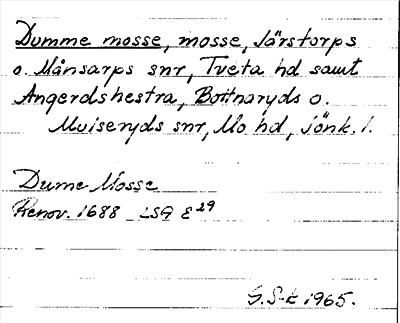 Dumme mosse, mosse, Järstorps
o. Månsarps snr, Tveta hd samt
Angerdshestra, Bottnaryds o.
Mulseryds snr, Mo hd, Jönk. l.
Dume Mosse
Renov. 1688 LSA E29
G. S-k 1965.